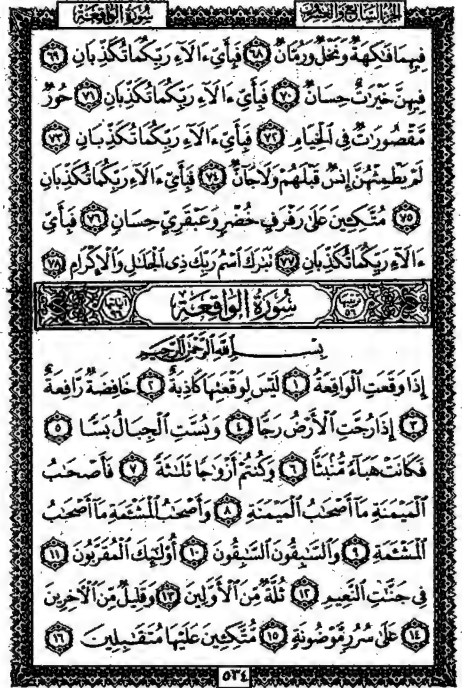 سُورَةُ الوَاقِعَة الجزء السابع والعشرون
فِيهِمَا فَٰكِهَةٌ وَنَخْلٌ وَرُمَّانٌ ٦٨ فَبِأَيِّ ءَالَآءِ رَبِّكُمَا تُكَذِّبَانِ ٦٩
فِيهِنَّ خَيْرَٰتٌ حِسَانٌ ٧٠ فَبِأَيِّ ءَالَآءِ رَبِّكُمَا تُكَذِّبَانِ ٧١ حُورٌ
مَّقْصُورَٰتٌ فِي ٱلْخِيَامِ ٧٢ فَبِأَيِّ ءَالَآءِ رَبِّكُمَا تُكَذِّبَانِ ٧٣
لَمْ يَطْمِثْهُنَّ إِنسٌ قَبْلَهُمْ وَلَا جَآنٌّ ٧٤ فَبِأَيِّ ءَالَآءِ رَبِّكُمَا تُكَذِّبَانِ
٧٥ مُتَّكِـِٔينَ عَلَىٰ رَفْرَفٍ خُضْرٍ وَعَبْقَرِيٍّ حِسَانٍ ٧٦ فَبِأَيِّ
ءَالَآءِ رَبِّكُمَا تُكَذِّبَانِ ٧٧ تَبَٰرَكَ ٱسْمُ رَبِّكَ ذِي ٱلْجَلَٰلِ وَٱلْإِكْرَامِ ٧٨
ترتيبها ٥٦ سُورَةُ الوَاقِعَة آياتها ٩٦
بِسْمِ ٱللَّهِ ٱلرَّحْمَٰنِ ٱلرَّحِيمِ
إِذَا وَقَعَتِ ٱلْوَاقِعَةُ ١ لَيْسَ لِوَقْعَتِهَا كَاذِبَةٌ ٢ خَافِضَةٌ رَّافِعَةٌ
٣ إِذَا رُجَّتِ ٱلْأَرْضُ رَجًّا ٤ وَبُسَّتِ ٱلْجِبَالُ بَسًّا ٥
فَكَانَتْ هَبَآءً مُّنۢبَثًّا ٦ وَكُنتُمْ أَزْوَٰجًا ثَلَٰثَةً ٧ فَأَصْحَٰبُ
ٱلْمَيْمَنَةِ مَآ أَصْحَٰبُ ٱلْمَيْمَنَةِ ٨ وَأَصْحَٰبُ ٱلْمَشْـَٔمَةِ مَآ أَصْحَٰبُ
ٱلْمَشْـَٔمَةِ ٩ وَٱلسَّٰبِقُونَ ٱلسَّٰبِقُونَ ١٠ أُو۟لَٰٓئِكَ ٱلْمُقَرَّبُونَ ١١
فِي جَنَّٰتِ ٱلنَّعِيمِ ١٢ ثُلَّةٌ مِّنَ ٱلْأَوَّلِينَ ١٣ وَقَلِيلٌ مِّنَ ٱلْءَاخِرِينَ
١٤ عَلَىٰ سُرُرٍ مَّوْضُونَةٍ ١٥ مُّتَّكِـِٔينَ عَلَيْهَا مُتَقَٰبِلِينَ ١٦
٥٣٤